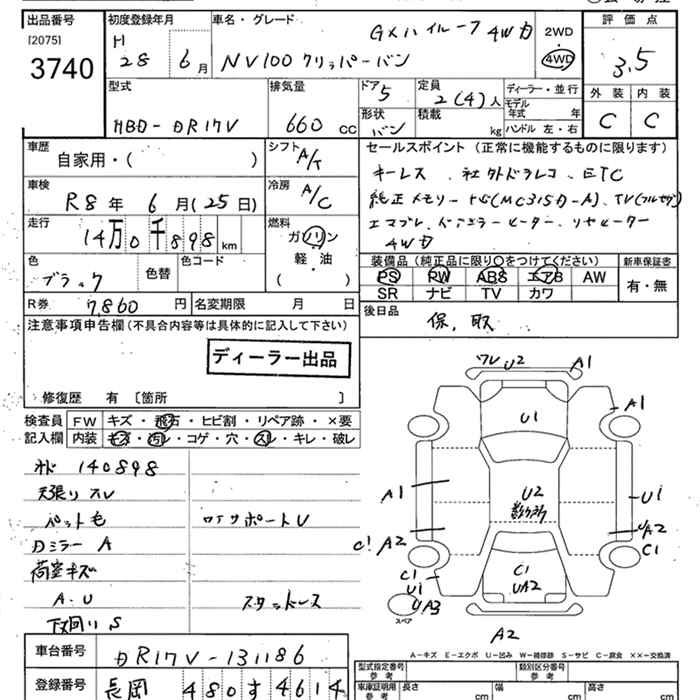 出品番号 初度登録年月 車名・グレード 2WD 評価点
[2075] H GXハイルーフ 4WD 4WD 3.5
3740 28 6月 NV100クリッパーバン
型式 排気量 ドア 5 定員 ディーラー・並行 外装 内装
HBD-DR17V 660 CC 2(4)人 モデル年式 年 C C
形状 バン 積載 kg ハンドル 左・右
車歴 シフト A/T セールスポイント(正常に機能するものに限ります)
自家用・( ) キーレス、社外ドラレコ、ETC
車検 冷房 A/C 純正メモリーナビ(MC315D-A)、TV(フルセグ)
R8年 6月(25日) エマブレ、ドアミラーヒーター、リヤヒーター
走行 燃料 4WD
14万0千898km ガソリン
色 色替 色コード 軽・油
ブラック ( )
装備品(純正品に限り○をつけてください) 新車保証書
PS PW ABS エアB AW 有・無
SR ナビ TV カワ
R券 7,860円 名変期限 月 日 後日品
保、取
注意事項申告欄(不具合内容等は具体的に記入して下さい)
ディーラー出品
修復歴 有〔箇所 〕
検査員 FW キズ・飛石・ヒビ割・リペア跡・×要
記入欄 内装 キズ・汚レ・コゲ・穴・スレ・キレ・破レ
140898
天張りスレ
ペット毛
Dミラー A
荷室キズ
A.U
下回り S
スタッドレス
U2 A1
U1 A1
A1 U2 U1
C1 A2 UA2 C1
C1 U1 C1 UA2
UA3
スペア
A2
A-キズ E-エクボ U-凹み W-補修跡 S-サビ C-腐食 XX-交換済
車台番号 DR17V-131186
登録番号 長岡 480す4614
型式指定番号 参考 類別区分番号 参考
車庫証明用 参考 長さ cm 幅 cm 高さ cm